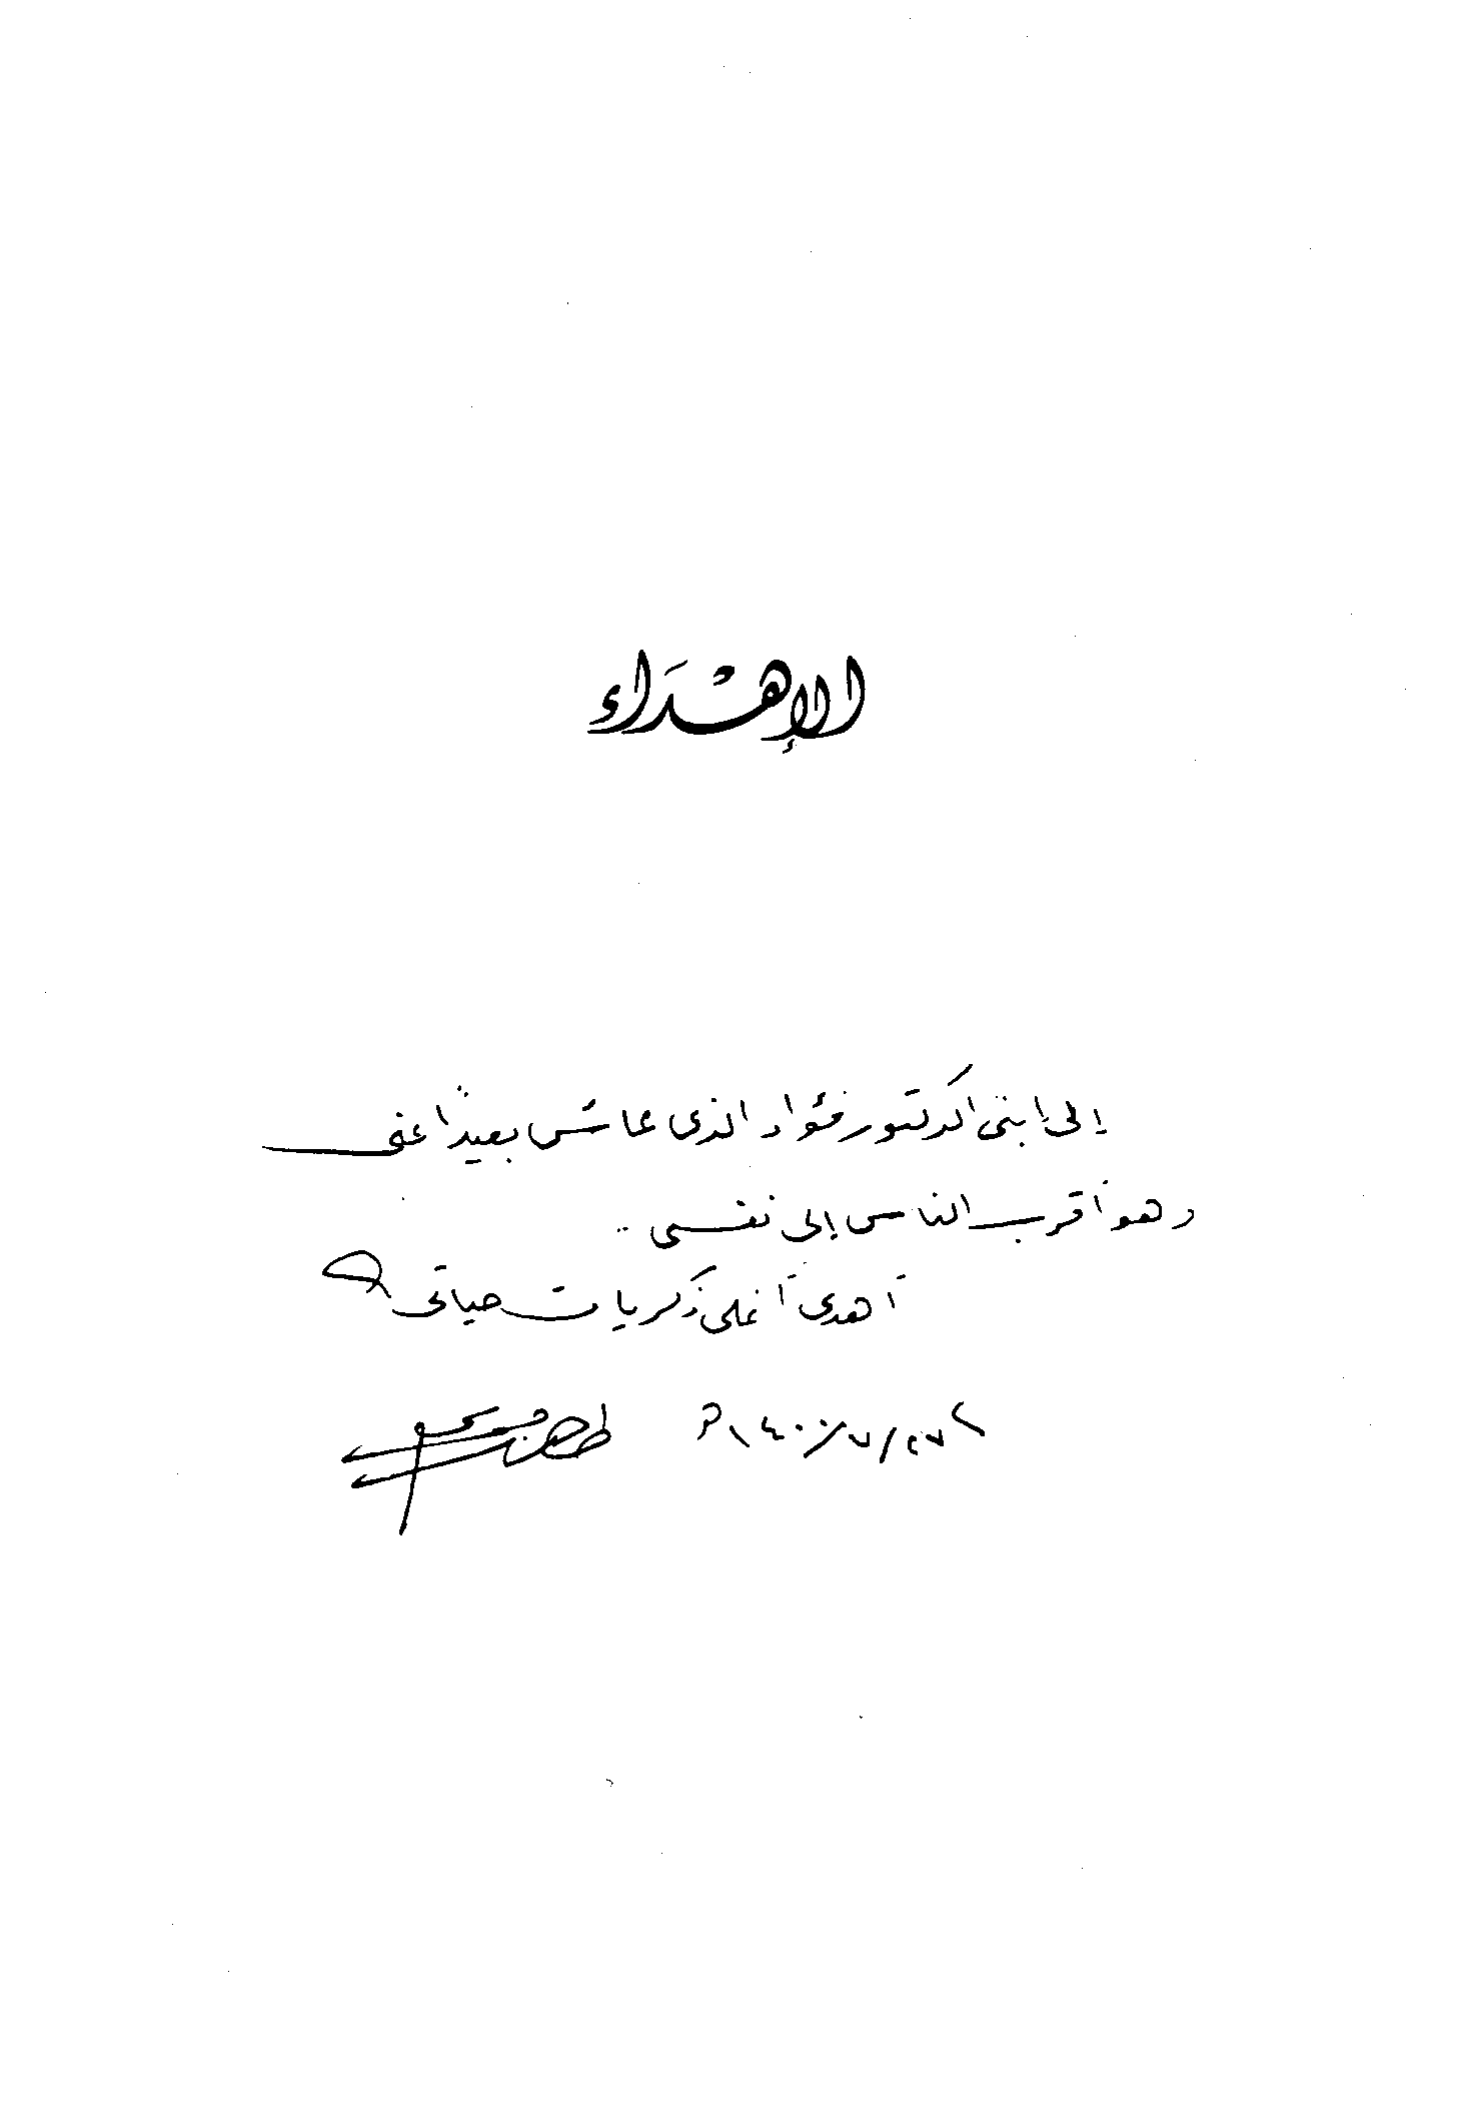 الإهْدَاء
إلى إبنى الدكتور فؤاد الذى عاش بعيدًا عنى
وهو أقرب الناس إلى نفسى ..
أهدى أغلى ذكريات حياتى
٢٧/٧/١٤٠٠ هـ